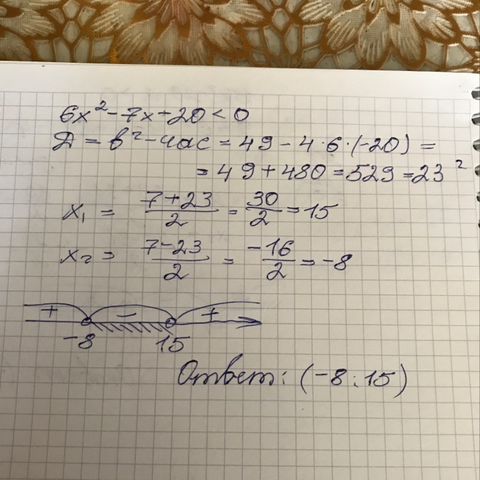 6x²-7x+20<0
Д = b²-4ac = 49 - 4·6·(-20) =
= 49+480=529=23²
x₁ = (7+23)/2 = 30/2 = 15
x₂ = (7-23)/2 = -16/2 = -8
+ - +
-8 15
Ответ: (-8;15)